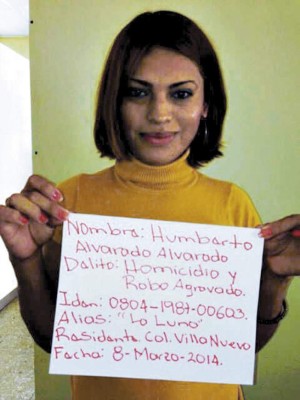 Nombre: Humberto
Alvarado Alvarado
Delito: Homicidio y
Robo Agravado.
Iden: 0804-1987-00603.
Alias: "La Luna"
Residente Col. Villa Nueva
Fecha: 8-Marzo-2014.